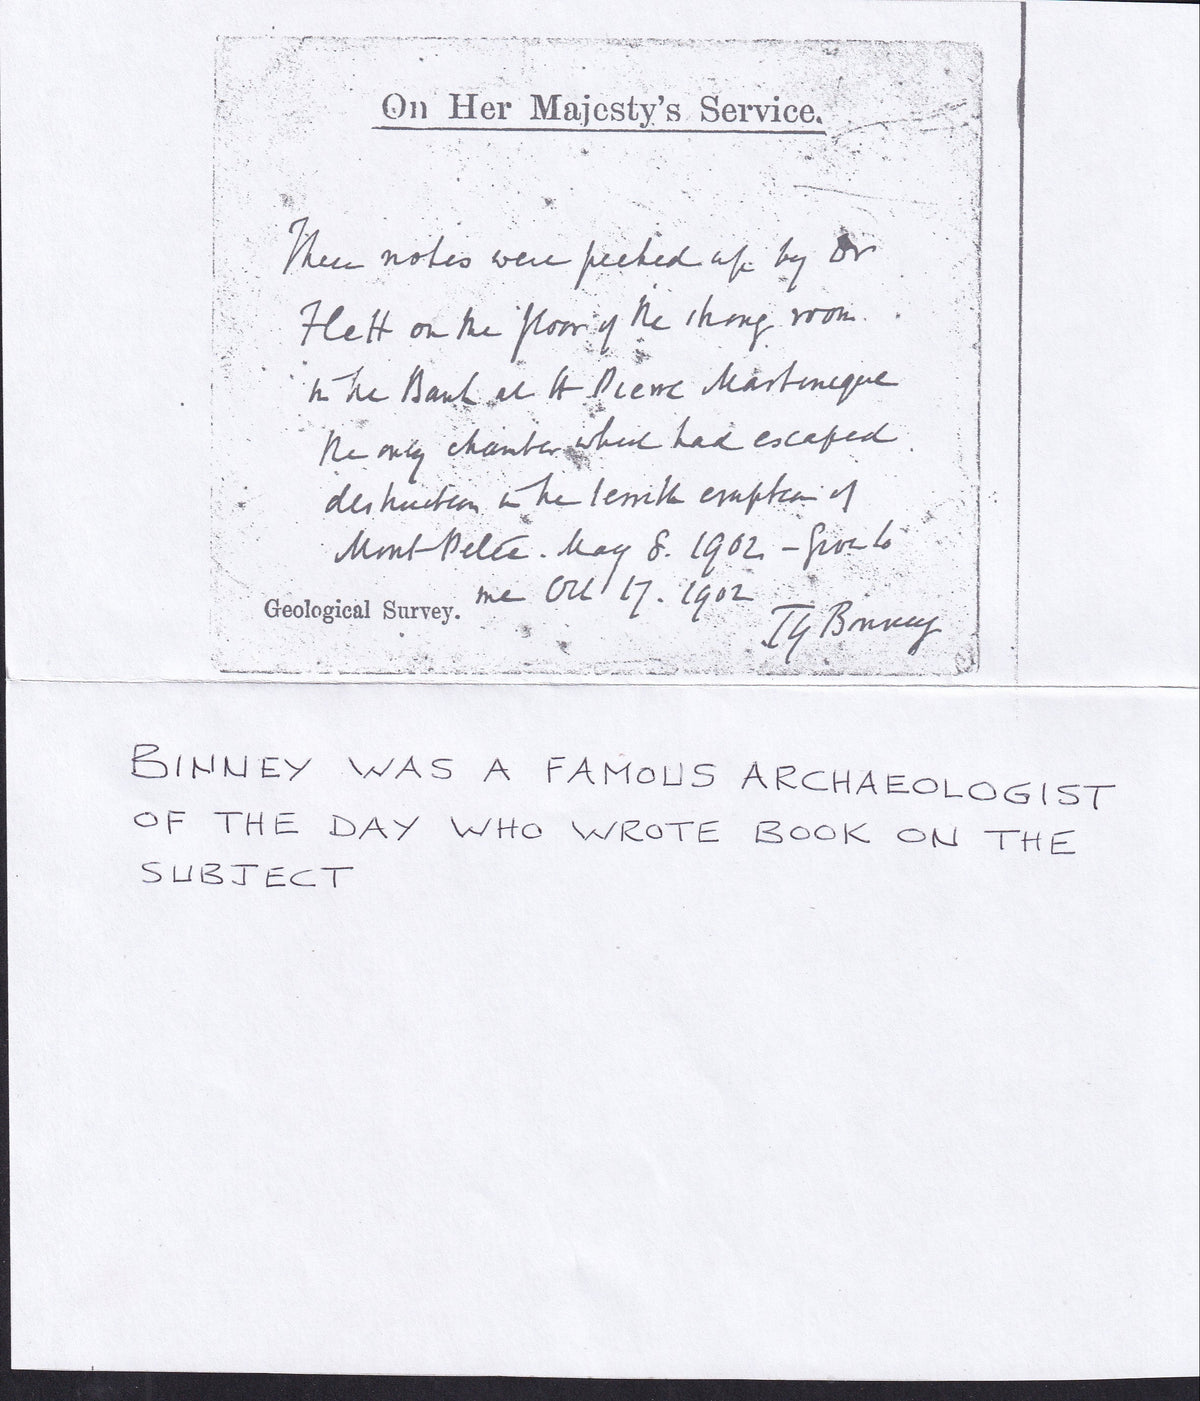 On Her Majesty's Service.
These notes were picked up by Dr
Flett on the floor of the strong room
in the Bank at St Pierre Martinique
the only chamber which had escaped
destruction in the terrible eruption of
Mont Pelée. May 8. 1902 – Given to
me Oct 17. 1902
Geological Survey.
T G Bonney
BINNEY WAS A FAMOUS ARCHAEOLOGIST
OF THE DAY WHO WROTE BOOK ON THE
SUBJECT